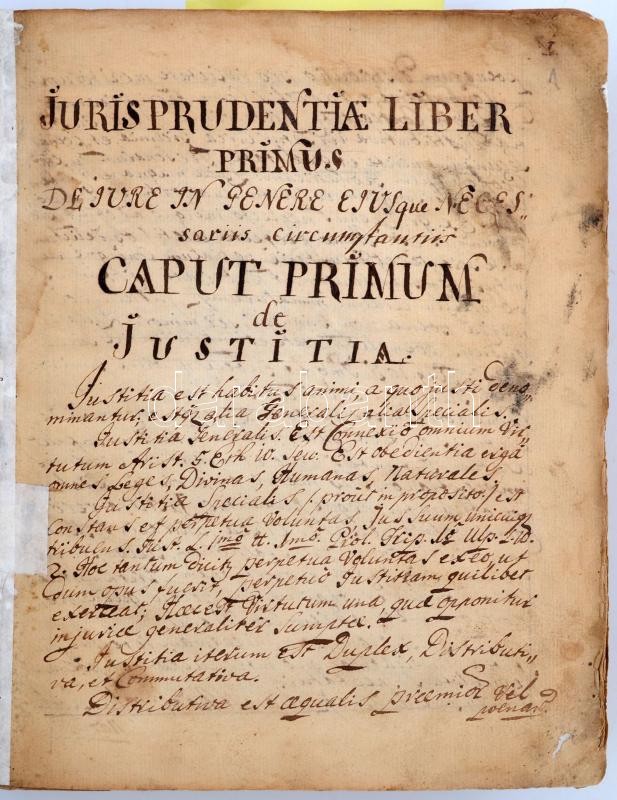 1
JURISPRUDENTIÆ LIBER
PRIMUS
DE IURE IN GENERE EIUSque NECES„
sariis circumstantiis
CAPUT PRIMUM
de
JUSTITIA.
Justitia est habitus animi, a quo justi deno„
minantur; estq alia Generalis alia Specialis.
Justitia Generalis. Est Connexio omnium Vir„
tutum Arist. 5. Eth. 10. seu. Est obedientia erga
omnes Leges, Divinas, Humanas, Naturales.
Justitia Specialis /: prout in proposito :/ est
Constans et perpetua Voluntas, Jus suum unicuiq
tribuens. Just. L. 1mo tt. 1mo.
2. Hoc tantum dicit, perpetua Voluntas exeo, ut
dum opus fuerit, perpetuo Justitiam quilibet
exerceat; Hæc est Virtutum una, quæ opponitur
injuriæ generaliter sumptæ.
Justitia iterum est Duplex, Distributi„
va, et Commutativa.
Distributiva est æqualis præmior Vel
poenar